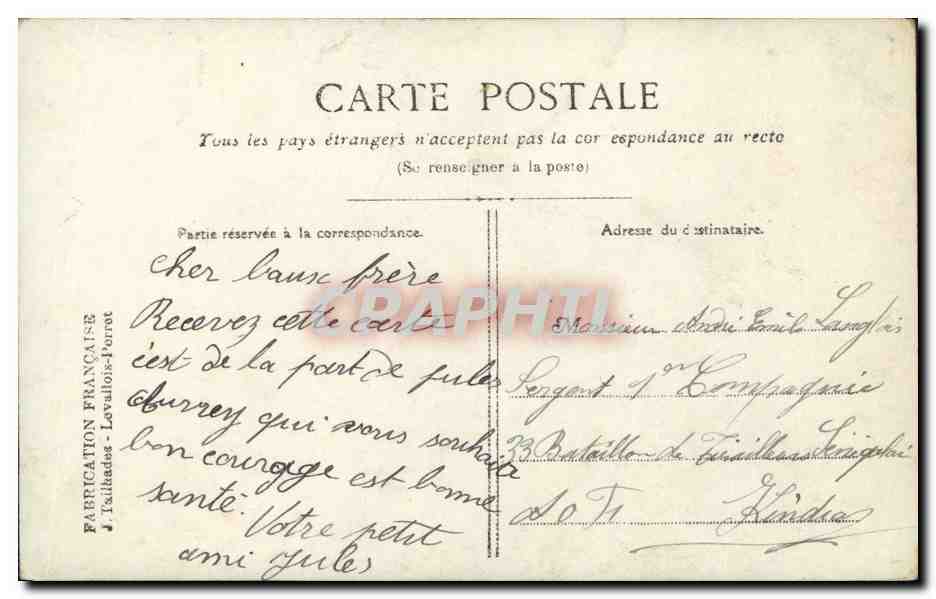 CARTE POSTALE
Tous les pays étrangers n'acceptent pas la cor espondance au recto
(Se renseigner à la poste)
Partie réservée à la correspondance.
cher baux frère
Recevez cette carte
c'est de la part de jules
qui vous souhaite
bon courage est bonne
santé.
Votre petit
ami Jules
Adresse du d stinataire.
Monsieur André Emile Langlois
Sergent 1er Compagnie
33 Bataillon de Tirailleurs Sénégalai
A O F Kindia
FABRICATION FRANÇAISE
J. Tailhades - Levallois-Perret
CPAPHIL